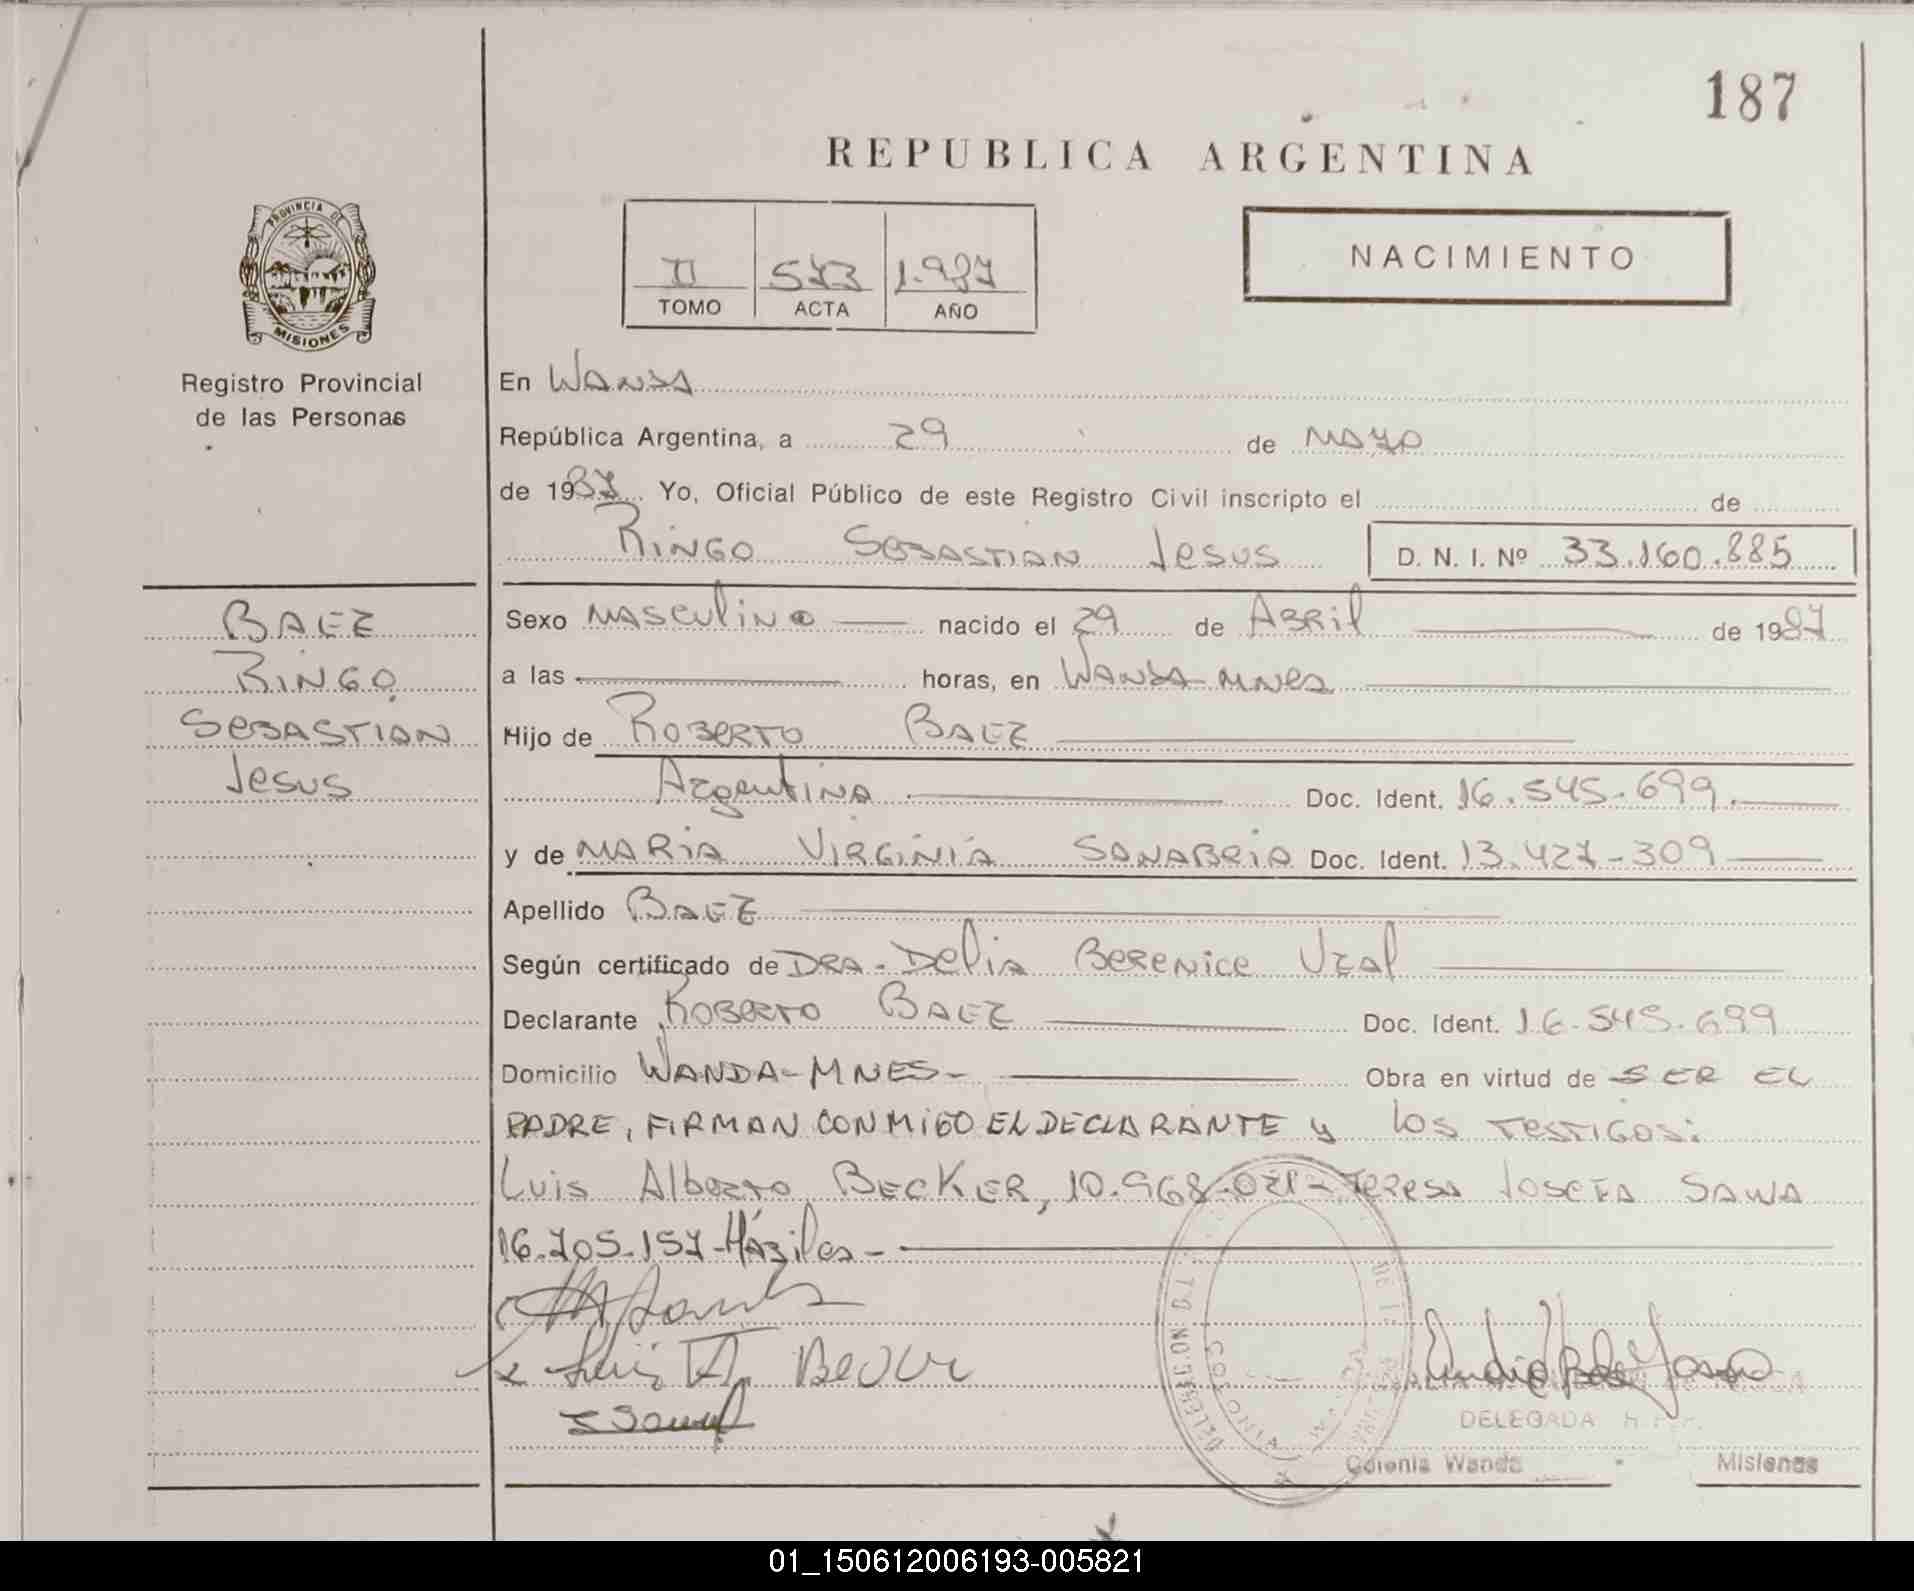 187
REPUBLICA ARGENTINA
PROVINCIA DE
MISIONES
Registro Provincial
de las Personas
II 573 1.987
TOMO ACTA AÑO
NACIMIENTO
En WANDA
República Argentina, a 29 de MAYO
de 1987 Yo, Oficial Público de este Registro Civil inscripto el de
RINGO SEBASTIAN JESUS D. N. I. Nº 33.160.885
BAEZ
RINGO
SEBASTIAN
JESUS
Sexo MASCULINO nacido el 29 de ABRIL de 1987
a las horas, en WANDA-MNES
Hijo de ROBERTO BAEZ
Argentina Doc. Ident. 16.545.699.
y de MARIA VIRGINIA SANABRIA Doc. Ident. 13.427-309
Apellido BAEZ
Según certificado de DRA. DELIA BERENICE UZAL
Declarante ROBERTO BAEZ Doc. Ident. 16.545.699
Domicilio WANDA-MNES- Obra en virtud de SER EL
PADRE, FIRMAN CONMIGO EL DECLARANTE y los TESTIGOS:
Luis Alberto BECKER, 10.968.021- TERESA JOSEFA SAWA
16.705.157-Hábiles-
Luis A. Becker
DELEGADA
Colonia Wanda Misiones
01_150612006193-005821